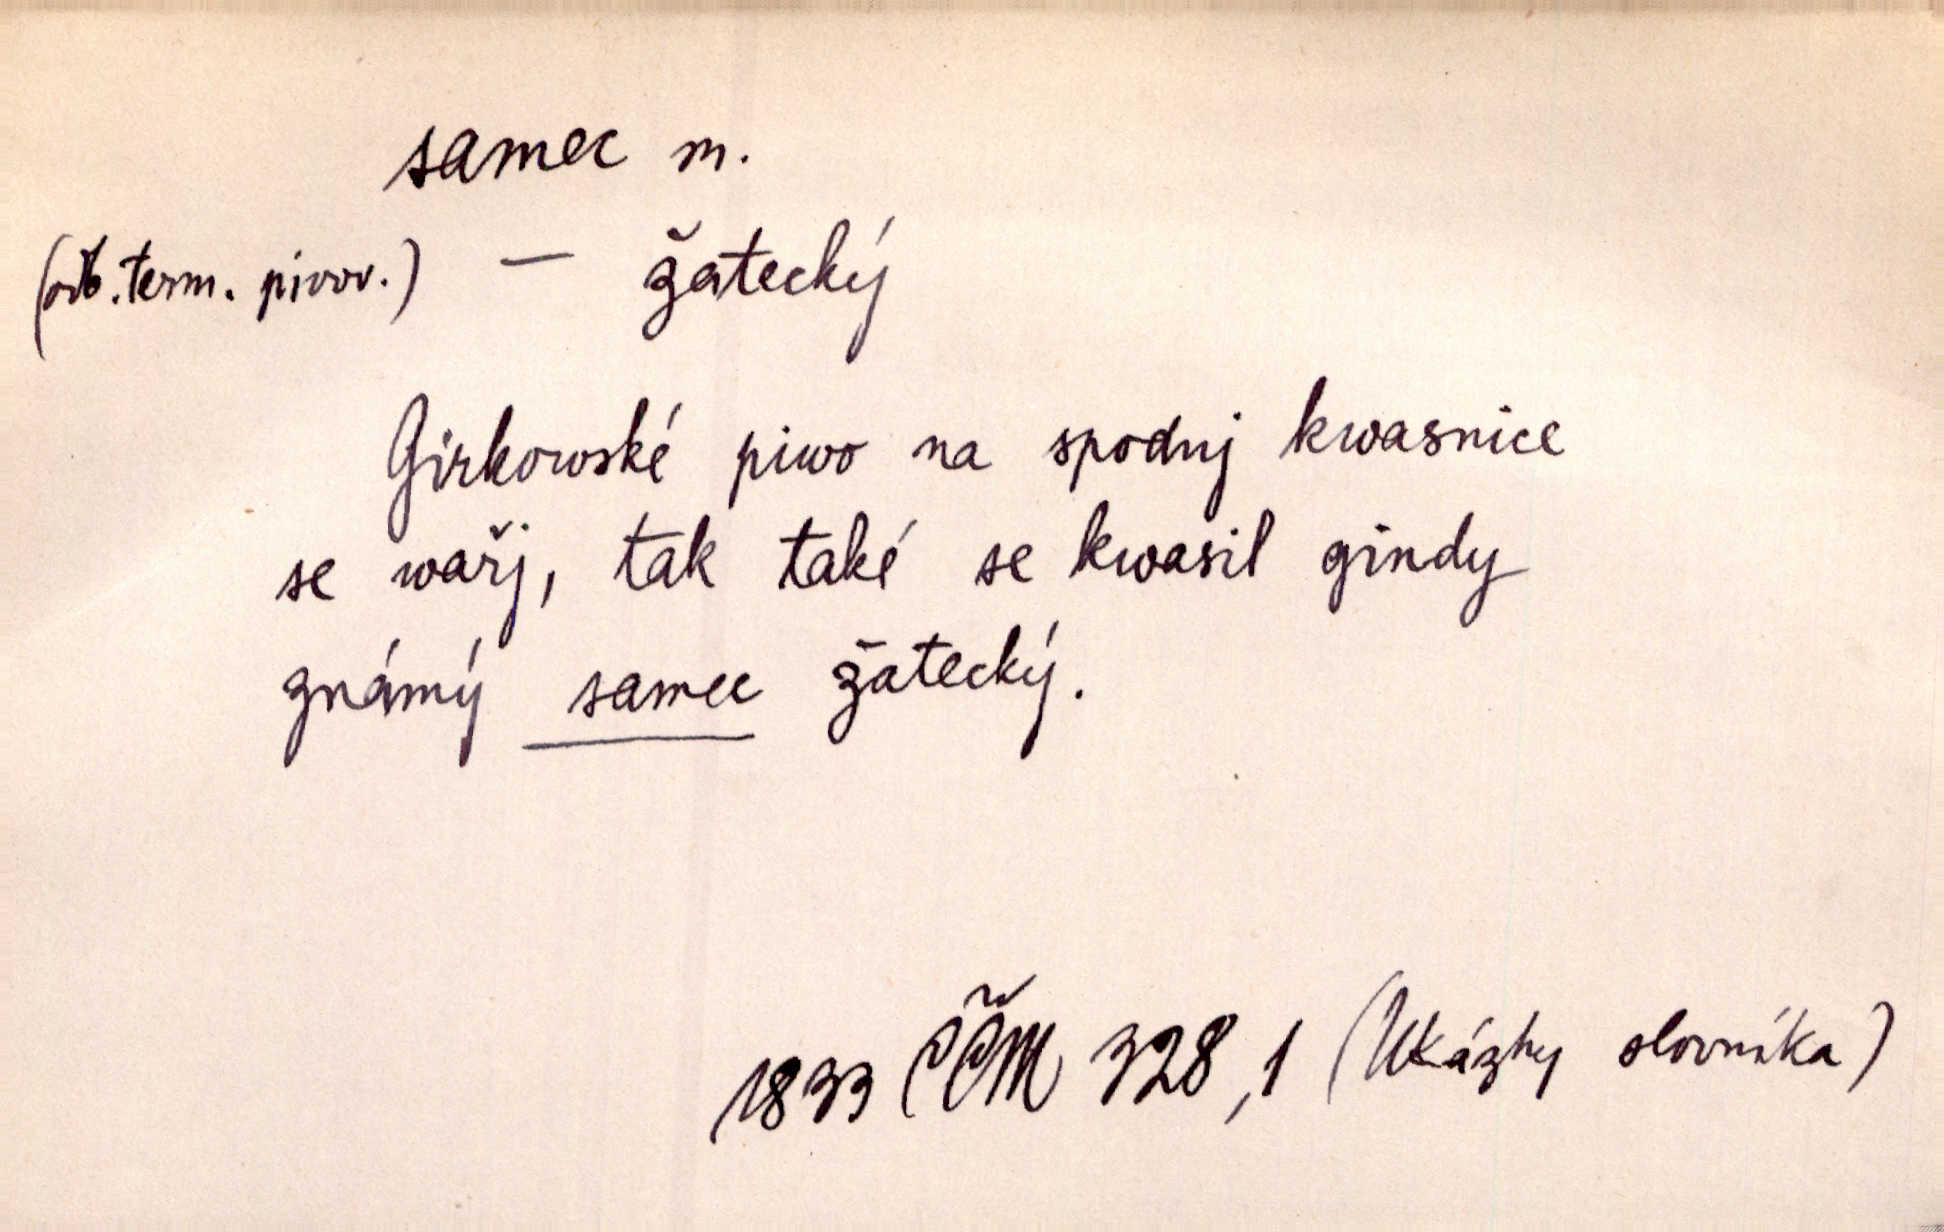 samec m.
(odb. term. pivov.) — žatecký
Girkowské piwo na spodnj kwasnice
se wařj, tak také se kwasil gindy
známý samec žatecký.
1833 ČČM 328,1 (Ukázky slovníka)